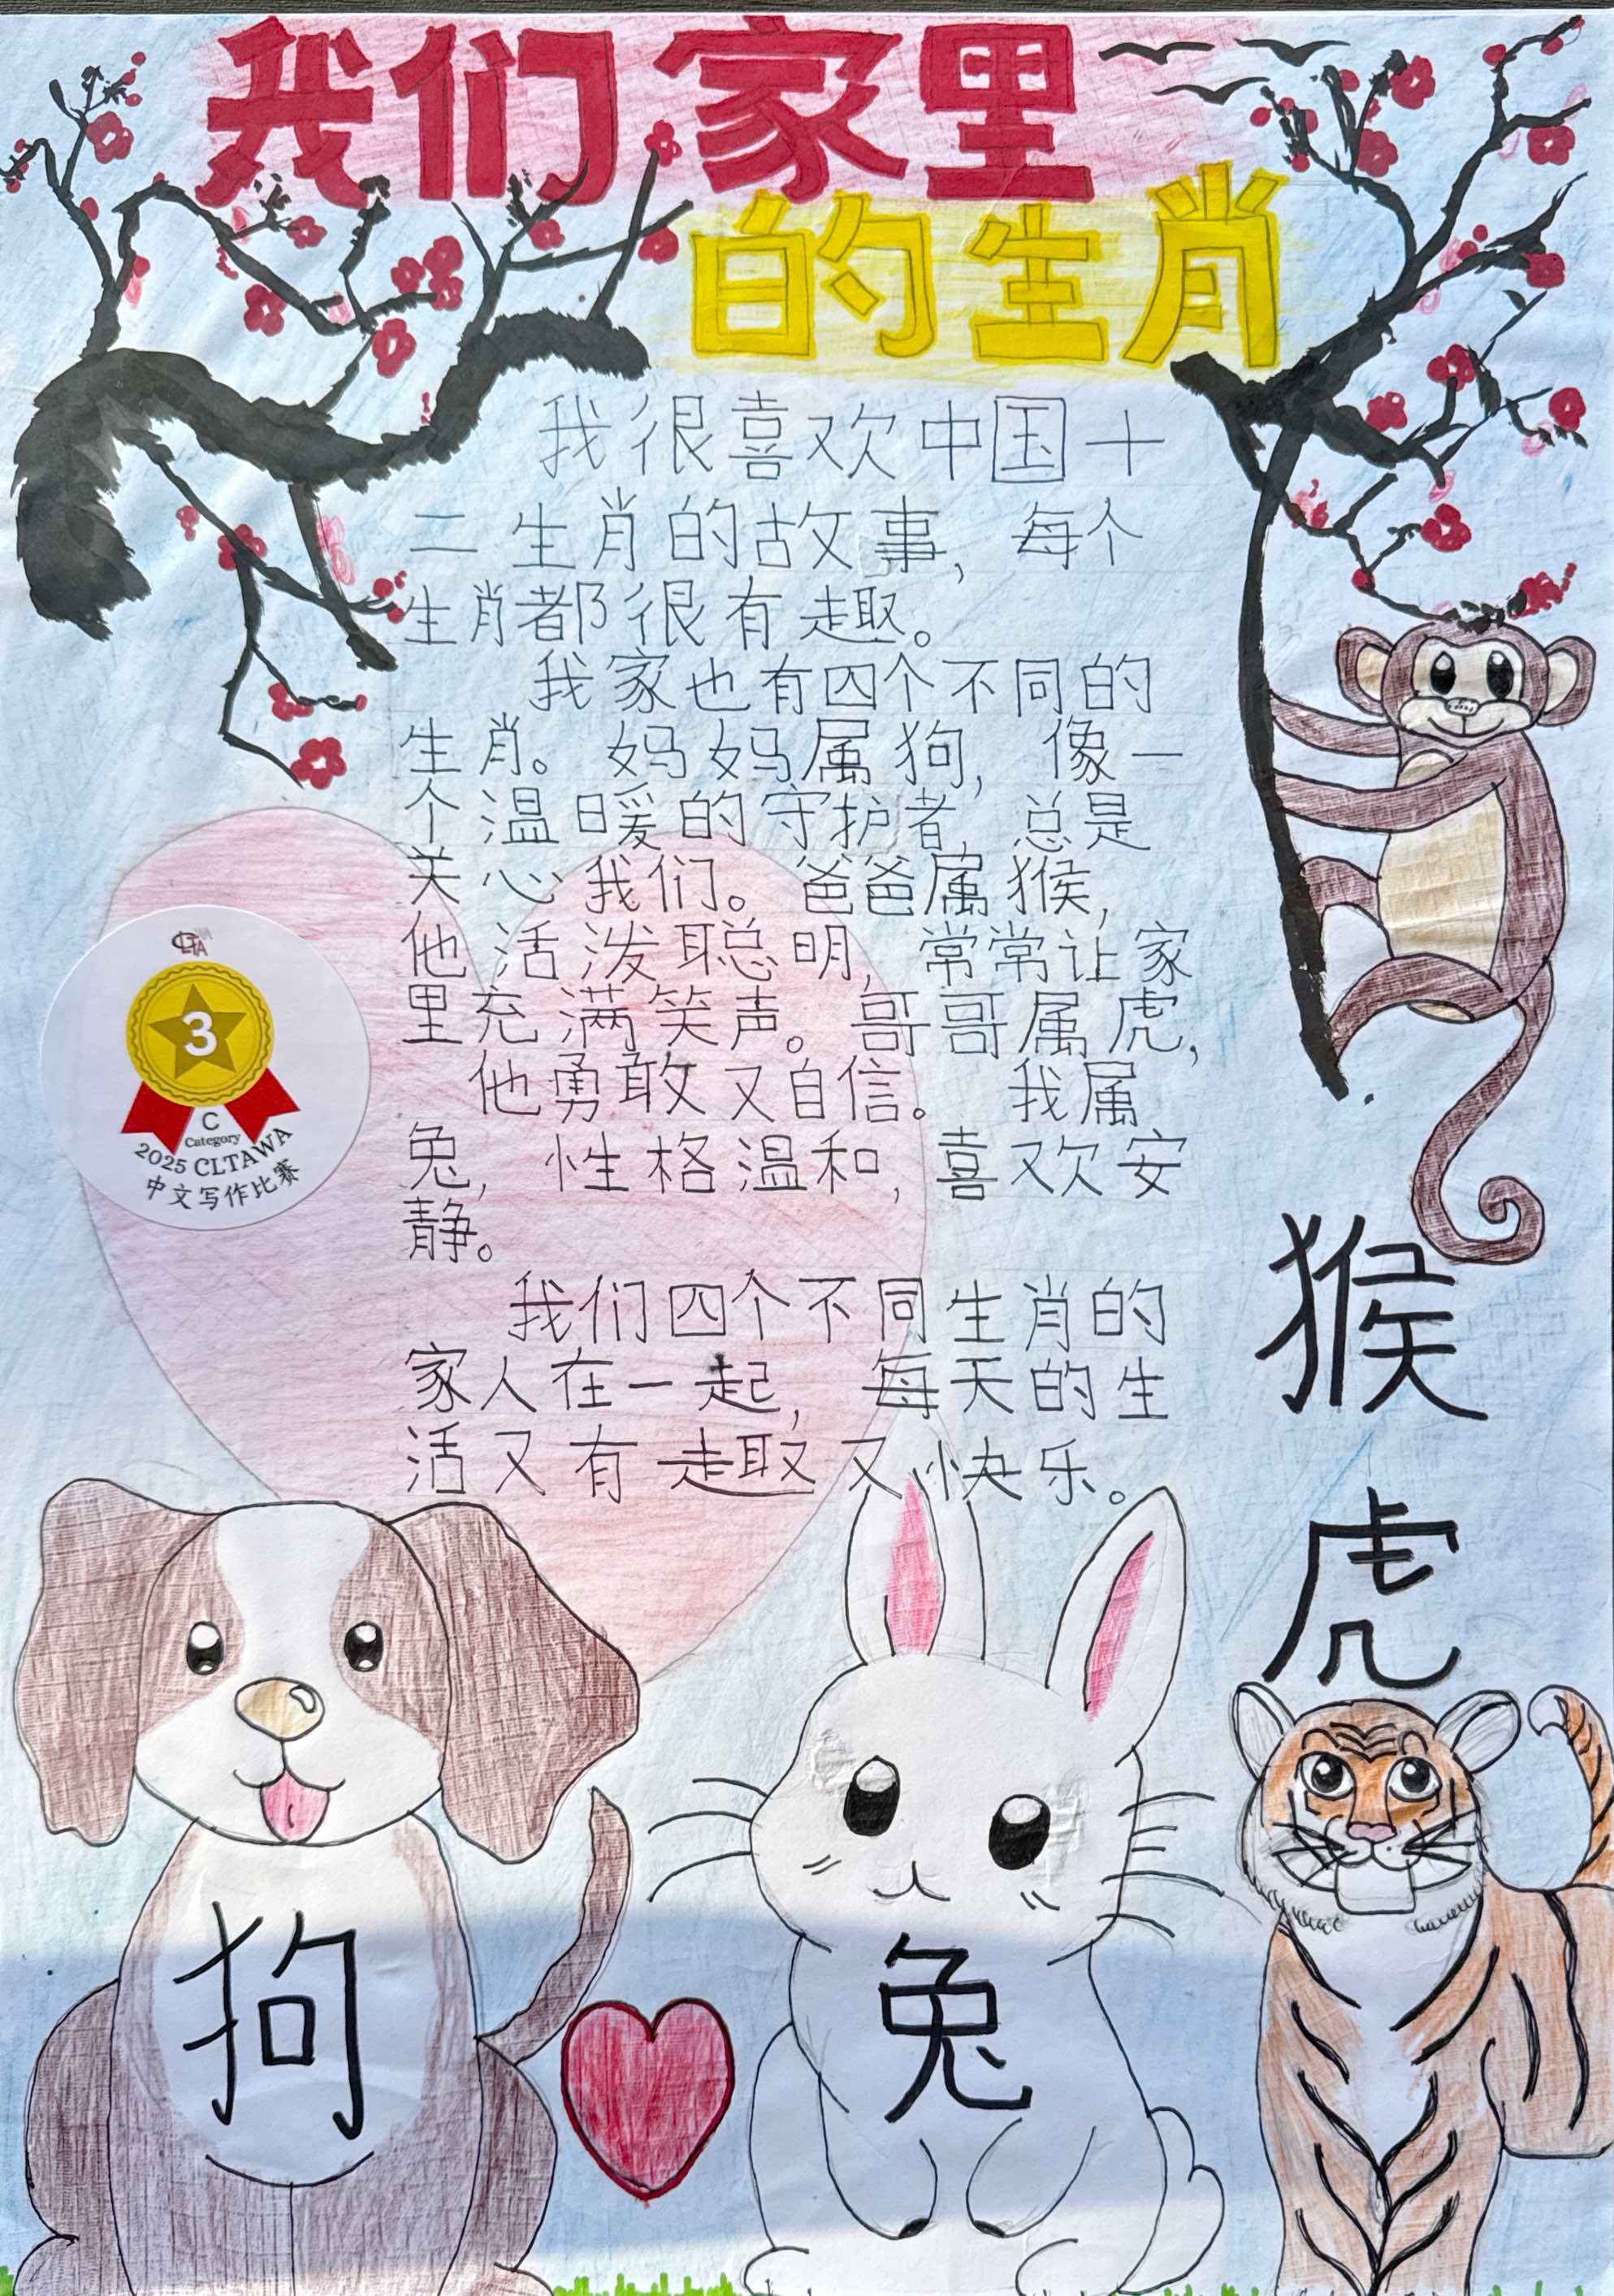 我们家里
的生肖
我很喜欢中国十
二生肖的故事，每个
生肖都很有趣。
我家也有四个不同的
生肖。妈妈属狗，像一
个温暖的守护者，总是
关心我们。爸爸属猴，
他活泼聪明，常常让家
里充满笑声。哥哥属虎，
他勇敢又自信。我属
兔，性格温和，喜欢安
静。
我们四个不同生肖的
家人在一起，每天的生
活又有趣又快乐。
CLTA
3
C
Category
2025 CLTAWA
中文写作比赛
猴
虎
狗
兔